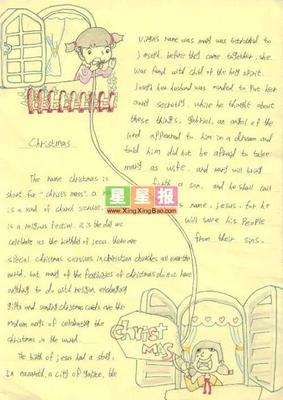 Christmas
The name christmas is
short for "christ's mass". A
is a kind of church service
is a religious festival. it is the day we
celebrate as the birthday of jesus. there are
special christmas services in christian churches all over the
world. but many of the festivities of christmas do not have
anything to do with religion. exchanging
gifts and sending christmas cards are the
modern ways of celebrating the
christmas in the world.
The birth of jesus had a story,
In nazareth, a city of galilee, the
virgin's name was mary was betrothed to
joseph. before they came together, she
was found with child of the holy spirit.
Joseph her husband was minded to put her
away secretly. while he thought about
these things. gabriel, an angel of the
lord appeared to him in a dream and
told him did not be afraid to take
mary as wife. and mary will bring
forth a son, and he shall call
name, jesus, for he
will save his people
from their sins.
星星报
www.XingXingBao.com
Christ
MAS